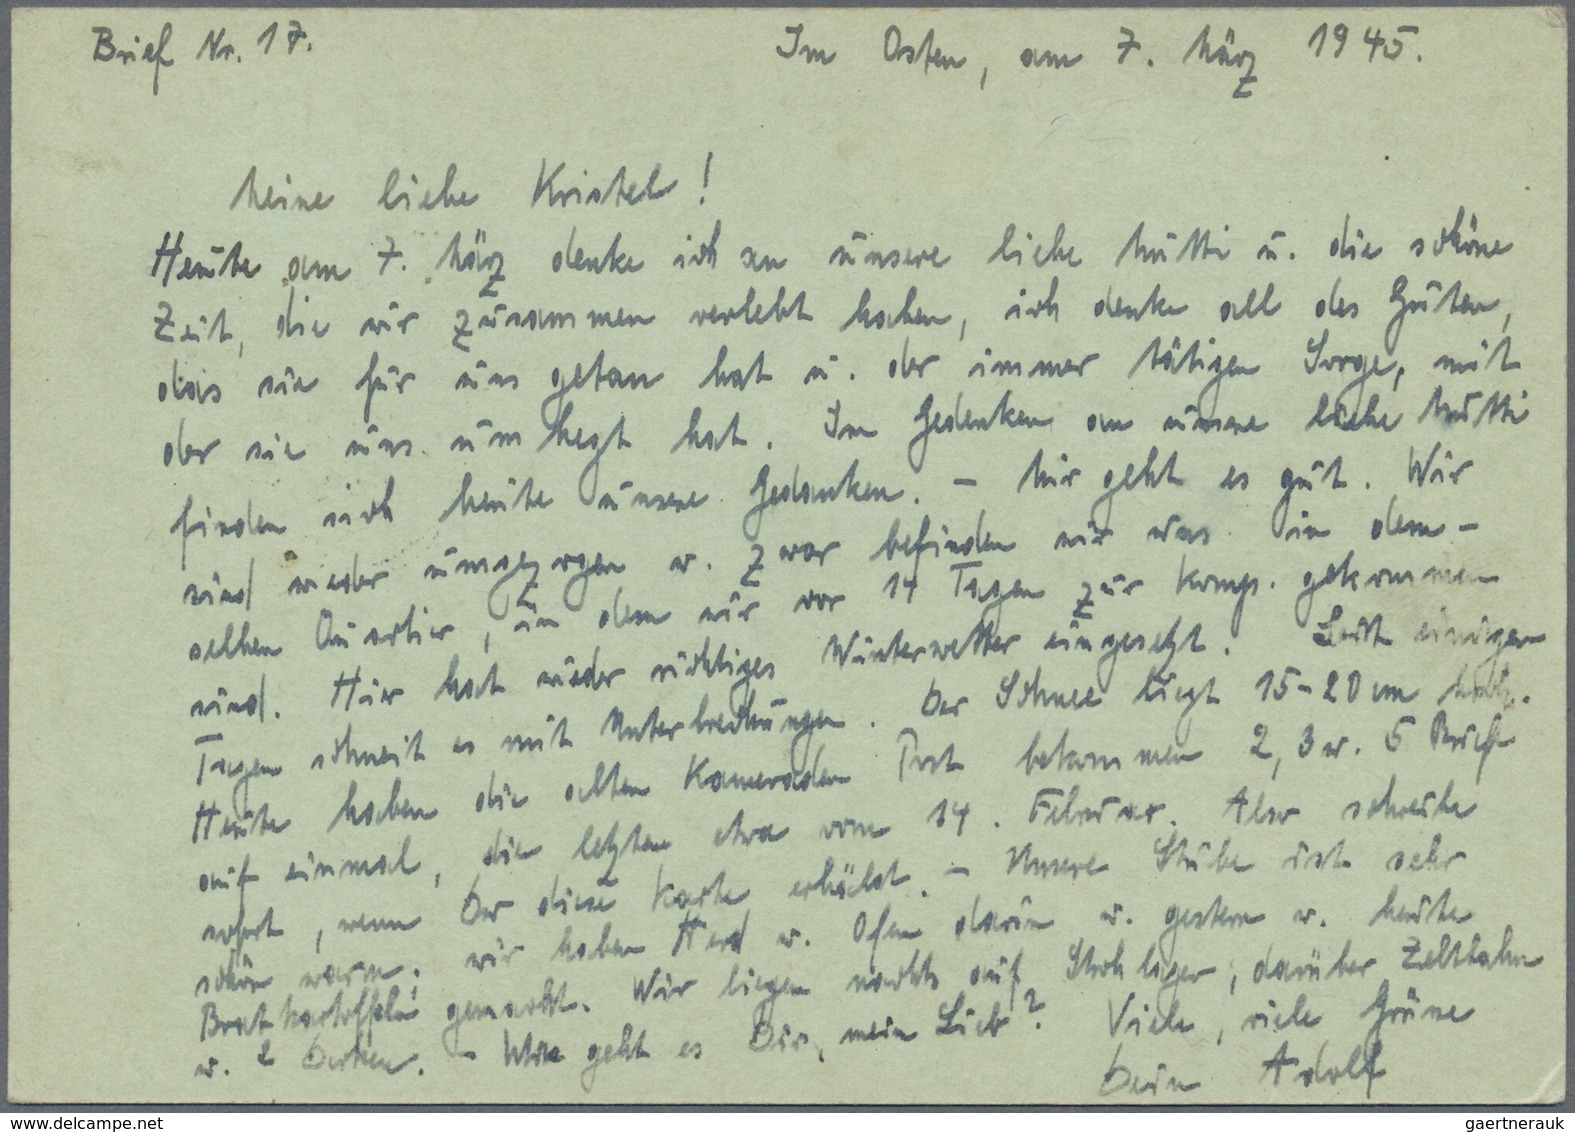 Brief Nr. 17. Im Osten, am 7. März 1945.
Meine liebe Kristel!
Heute am 7. März denke ich an unsere liebe Mutti u. die schöne
Zeit, die wir zusammen verlebt haben, ich denke all des Guten,
das sie für uns getan hat u. der immer tätigen Sorge, mit
der sie uns umhegt hat. Im Gedenken an unsere liebe Mutti
finden sich heute unsere Gedanken. – Mir geht es gut. Wir
sind wieder umgezogen u. zwar befinden wir uns in dem-
selben Quartier, in dem wir vor 14 Tagen zur Komp. gekommen
sind. Hier hat wieder richtiges Winterwetter eingesetzt. Seit einigen
Tagen schneit es mit Unterbrechungen. Der Schnee liegt 15-20 cm hoch.
Heute haben die alten Kameraden Post bekommen 2, 3 u. 5 Briefe
auf einmal, die letzten etwa vom 14. Februar. Also schreibe
sofort, wenn Du diese Karte erhälst. – Unsere Stube ist sehr
schön warm, wir haben Herd u. Ofen darin u. gestern u. heute
Bratkartoffeln gemacht. Wir liegen nachts auf Strohlager, darüber Zeltbahn
u. 2 Decken. – Wie geht es Dir, mein Lieb? Viele, viele Grüsse
Dein Adolf
gaertnerauk
www.delcampe.net